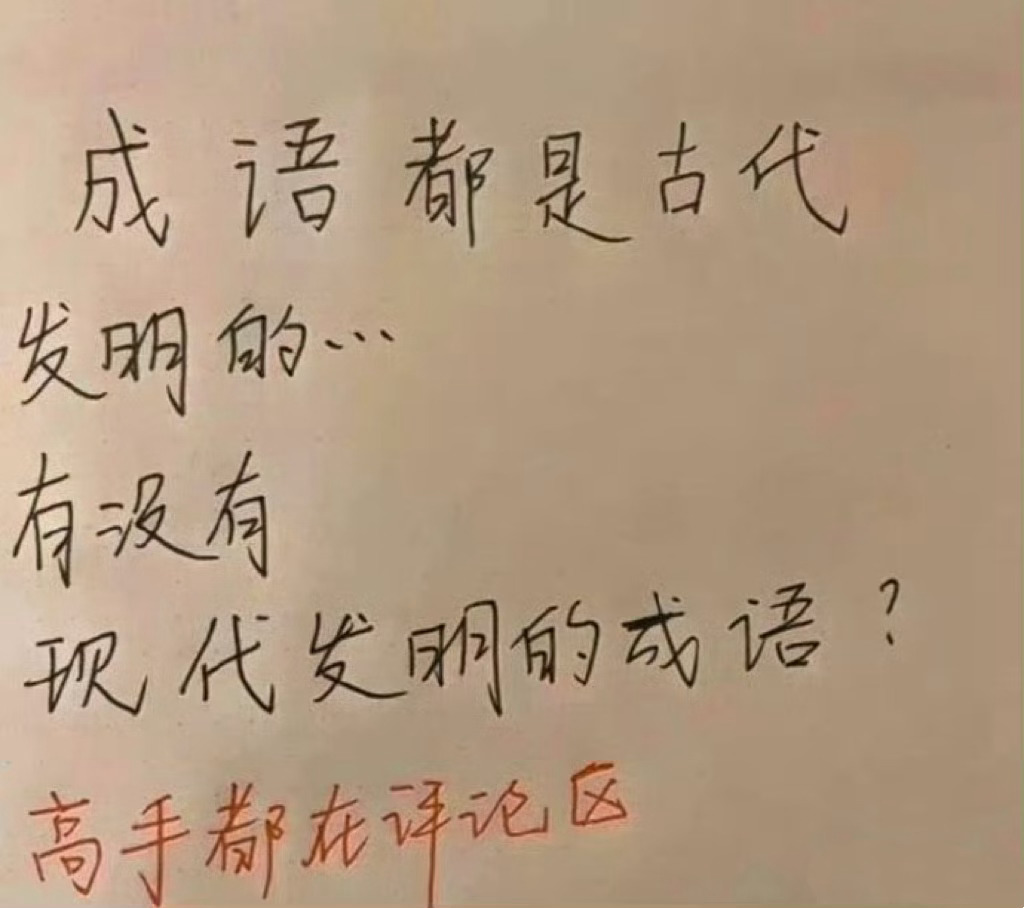 成语都是古代
发明的…
有没有
现代发明的成语？
高手都在评论区